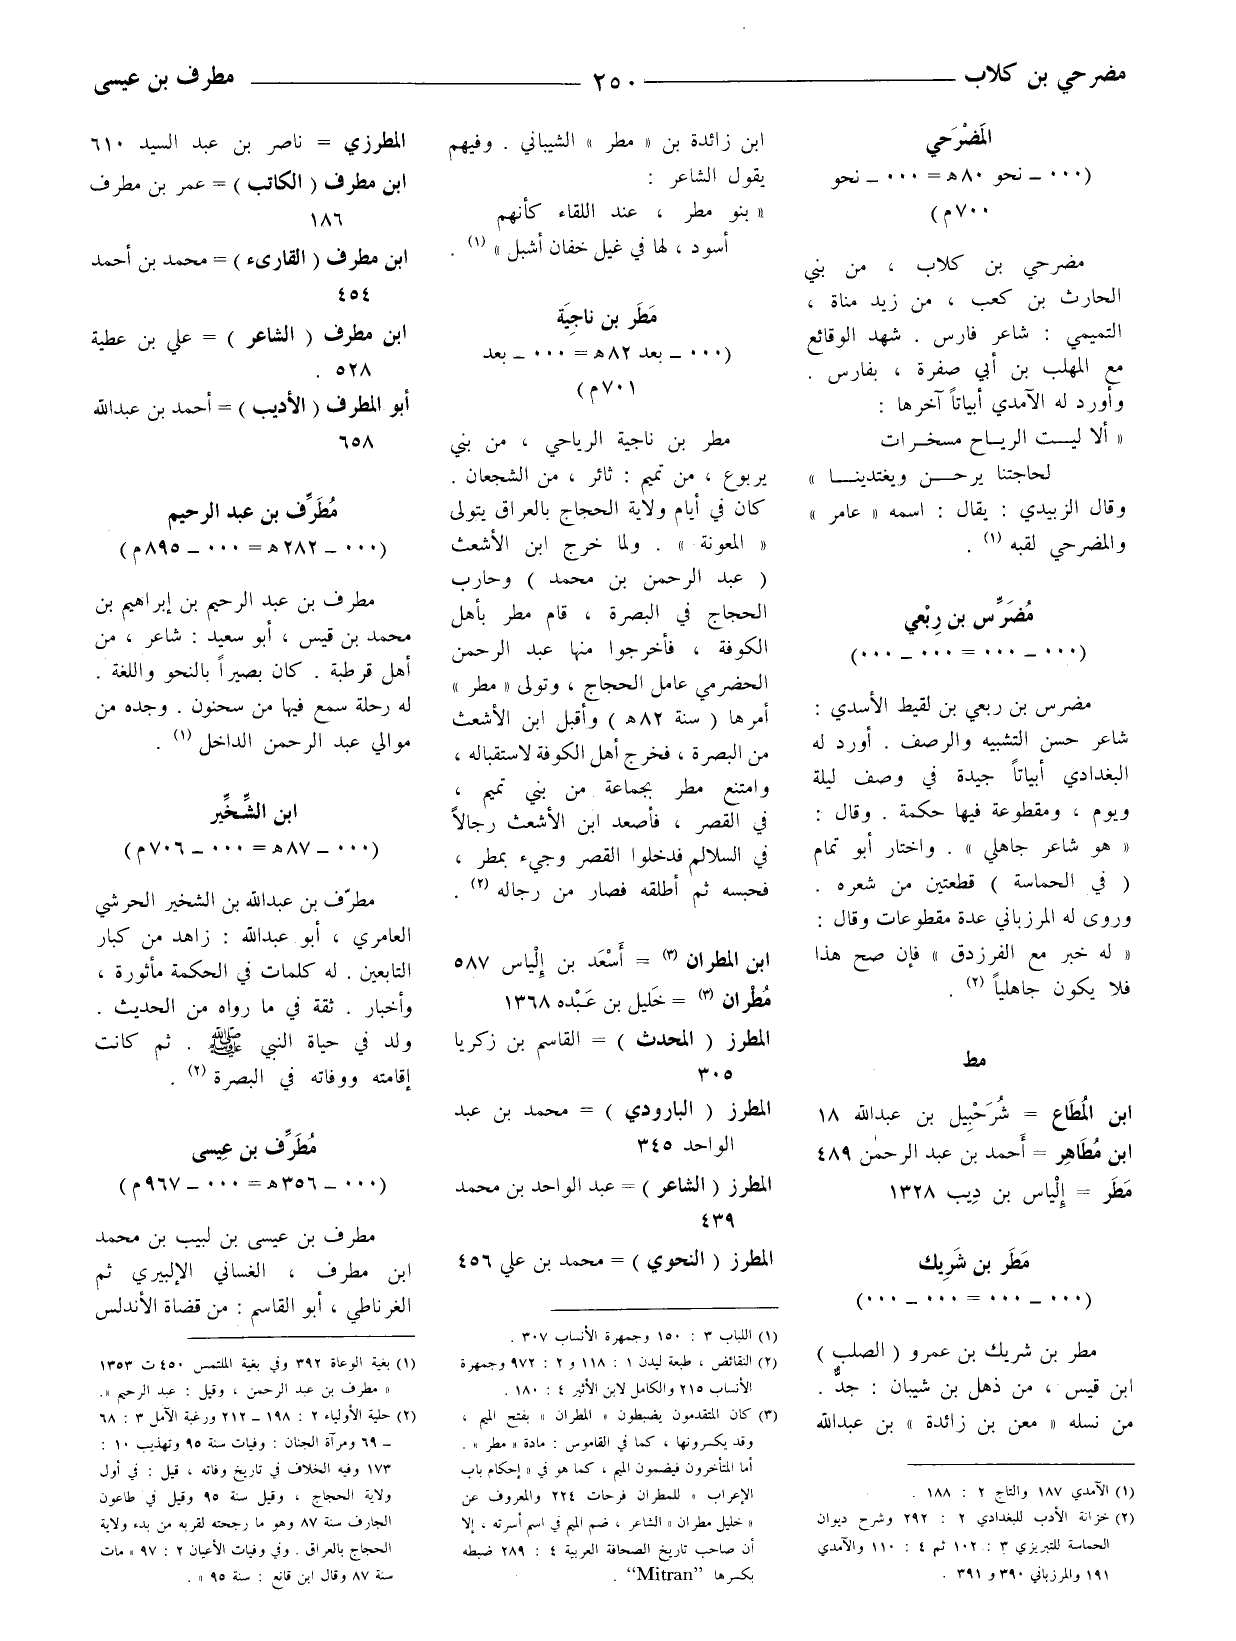 مضرحي بن كلاب ٢٥٠ مطرف بن عيسى
المَضْرَحي
(٠٠٠ ــ نحو ٨٠هـ = ٠٠٠ ــ نحو
٧٠٠م)
مضرحي بن كلاب ، من بني
الحارث بن كعب ، من زيد مناة ،
التميمي : شاعر فارس . شهد الوقائع
مع المهلب بن أبي صفرة ، بفارس .
وأورد له الآمدي أبياتاً آخرها :
« ألا ليـت الريـاح مسخـرات
لحاجتنا يرحـن ويغتدينـا »
وقال الزبيدي : يقال : اسمه « عامر »
والمضرحي لقبه (١) .
مُضَرِّس بن رِبْعي
(٠٠٠ ــ ٠٠٠ = ٠٠٠ ــ ٠٠٠)
مضرس بن ربعي بن لقيط الأسدي :
شاعر حسن التشبيه والرصف . أورد له
البغدادي أبياتاً جيدة في وصف ليلة
ويوم ، ومقطوعة فيها حكمة . وقال :
« هو شاعر جاهلي » . واختار أبو تمام
( في الحماسة ) قطعتين من شعره .
وروى له المرزباني عدة مقطوعات وقال :
« له خبر مع الفرزدق » فإن صح هذا
فلا يكون جاهلياً (٢) .
مط
ابن المُطَاع = شُرَحْبِيل بن عبدالله ١٨
ابن مُطَاهِر = أَحمد بن عبد الرحمٰن ٤٨٩
مَطَر = إلْياس بن دِيب ١٣٢٨
مَطَر بن شَرِيك
(٠٠٠ ــ ٠٠٠ = ٠٠٠ ــ ٠٠٠)
مطر بن شريك بن عمرو ( الصلب )
ابن قيس ، من ذهل بن شيبان : جدٌّ .
من نسله « معن بن زائدة » بن عبدالله
(١) الآمدي ١٨٧ والتاج ٢ : ١٨٨ .
(٢) خزانة الأدب للبغدادي ٢ : ٢٩٢ وشرح ديوان
الحماسة للتبريزي ٣ : ١٠٢ ثم ٤ : ١١٠ والآمدي
١٩١ والمرزباني ٣٩٠ و ٣٩١ .
ابن زائدة بن « مطر » الشيباني . وفيهم
يقول الشاعر :
« بنو مطر ، عند اللقاء كأنهم
أسود ، لها في غيل خفان أشبل » (١) .
مَطَر بن ناجِيَة
(٠٠٠ ــ بعد ٨٢هـ = ٠٠٠ ــ بعد
٧٠١م)
مطر بن ناجية الرياحي ، من بني
يربوع ، من تميم : ثائر ، من الشجعان .
كان في أيام ولاية الحجاج بالعراق يتولى
« المعونة » . ولما خرج ابن الأشعث
( عبد الرحمن بن محمد ) وحارب
الحجاج في البصرة ، قام مطر بأهل
الكوفة ، فأخرجوا منها عبد الرحمن
الحضرمي عامل الحجاج ، وتولى « مطر »
أمرها ( سنة ٨٢هـ ) وأقبل ابن الأشعث
من البصرة ، فخرج أهل الكوفة لاستقباله ،
وامتنع مطر بجماعة من بني تميم ،
في القصر ، فأصعد ابن الأشعث رجالاً
في السلالم فدخلوا القصر وجيء بمطر ،
فحبسه ثم أطلقه فصار من رجاله (٢) .
ابن المطران (٣) = أَسْعَد بن إلْياس ٥٨٧
مُطْران (٣) = خَليل بن عَبْده ١٣٦٨
المطرز ( المحدث ) = القاسم بن زكريا
٣٠٥
المطرز ( البارودي ) = محمد بن عبد
الواحد ٣٤٥
المطرز ( الشاعر ) = عبد الواحد بن محمد
٤٣٩
المطرز ( النحوي ) = محمد بن علي ٤٥٦
(١) اللباب ٣ : ١٥٠ وجمهرة الأنساب ٣٠٧ .
(٢) النقائض ، طبعة ليدن ١ : ١١٨ و ٢ : ٩٧٢ وجمهرة
الأنساب ٢١٥ والكامل لابن الأثير ٤ : ١٨٠ .
(٣) كان المتقدمون يضبطون « المطران » بفتح الميم ،
وقد يكسرونها ، كما في القاموس : مادة « مطر » .
أما المتأخرون فيضمون الميم ، كما هو في « إحكام باب
الإعراب » للمطران فرحات ٢٢٤ والمعروف عن
« خليل مطران » الشاعر ، ضم الميم في اسم أسرته ، إلا
أن صاحب تاريخ الصحافة العربية ٤ : ٢٨٩ ضبطه
بكسرها "Mitran" .
المطرزي = ناصر بن عبد السيد ٦١٠
ابن مطرف ( الكاتب ) = عمر بن مطرف
١٨٦
ابن مطرف ( القارىء ) = محمد بن أحمد
٤٥٤
ابن مطرف ( الشاعر ) = علي بن عطية
٥٢٨ .
أبو المطرف ( الأديب ) = أحمد بن عبدالله
٦٥٨
مُطَرِّف بن عبد الرحيم
(٠٠٠ ــ ٢٨٢هـ = ٠٠٠ ــ ٨٩٥م)
مطرف بن عبد الرحيم بن إبراهيم بن
محمد بن قيس ، أبو سعيد : شاعر ، من
أهل قرطبة . كان بصيراً بالنحو واللغة .
له رحلة سمع فيها من سحنون . وجده من
موالي عبد الرحمن الداخل (١) .
ابن الشِّخِّير
(٠٠٠ ــ ٨٧هـ = ٠٠٠ ــ ٧٠٦م)
مطرّف بن عبدالله بن الشخير الحرشي
العامري ، أبو عبدالله : زاهد من كبار
التابعين . له كلمات في الحكمة مأثورة ،
وأخبار . ثقة في ما رواه من الحديث .
ولد في حياة النبي ﷺ . ثم كانت
إقامته ووفاته في البصرة (٢) .
مُطَرِّف بن عِيسى
(٠٠٠ ــ ٣٥٦هـ = ٠٠٠ ــ ٩٦٧م)
مطرف بن عيسى بن لبيب بن محمد
ابن مطرف ، الغساني الإلبيري ثم
الغرناطي ، أبو القاسم : من قضاة الأندلس
(١) بغية الوعاة ٣٩٢ وفي بغية الملتمس ٤٥٠ ت ١٣٥٣
« مطرف بن عبد الرحمن ، وقيل : عبد الرحيم ».
(٢) حلية الأولياء ٢ : ١٩٨ ــ ٢١٢ ورغبة الآمل ٣ : ٦٨
ــ ٦٩ ومرآة الجنان : وفيات سنة ٩٥ وتهذيب ١٠ :
١٧٣ وفيه الخلاف في تاريخ وفاته ، قيل : في أول
ولاية الحجاج ، وقيل سنة ٩٥ وقيل في طاعون
الجارف سنة ٨٧ وهو ما رجحته لقربه من بدء ولاية
الحجاج بالعراق . وفي وفيات الأعيان ٢ : ٩٧ « مات
سنة ٨٧ وقال ابن قانع : سنة ٩٥ » .